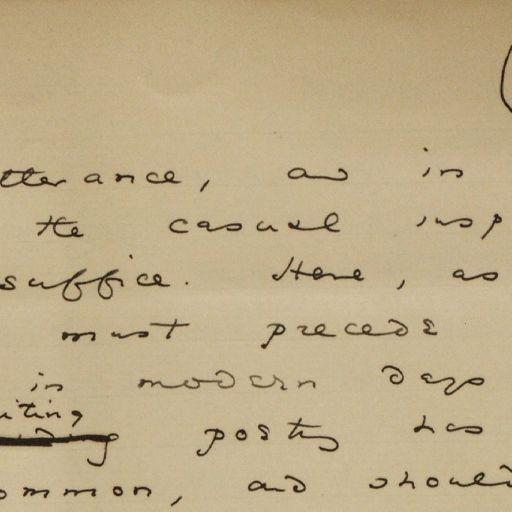 tterance, as in
the casual insp
suffice. Here, as
must precede
in modern days
iting
poetry has
ommon, and should